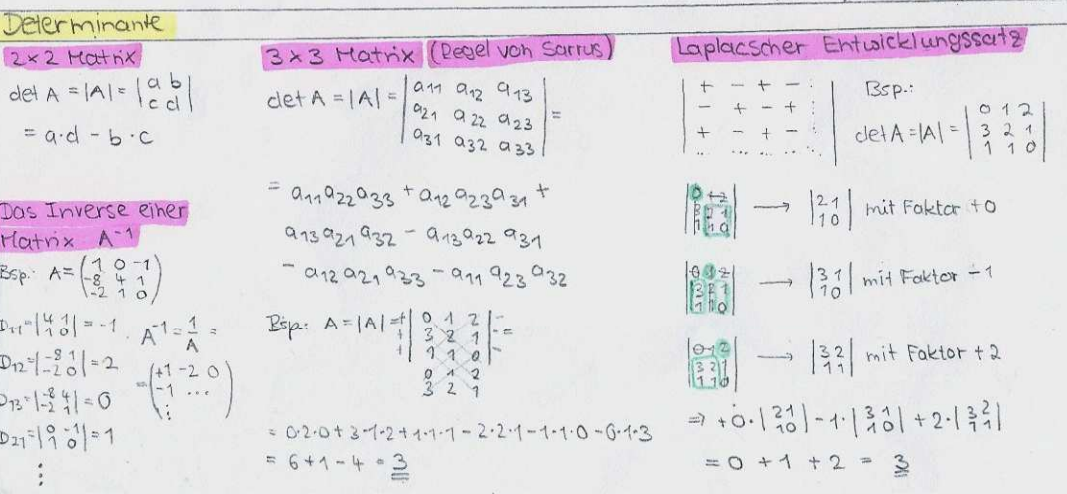 Determinante
2x2 Matrix
det A = |A| = |a b|
|c d|
= a·d - b·c
Das Inverse einer
Matrix A⁻¹
Bsp.: A = (1 0 -1)
(-8 4 1)
(-2 1 0)
D₁₁=|4 1| = -1
|1 0|
A⁻¹ = 1/A =
D₁₂=|-8 1| = 2
|-2 0|
= (+1 -2 0)
(-1 ...)
(⋮)
D₁₃=|-8 4| = 0
|-2 1|
D₂₁=|0 -1| = 1
|1 0|
⋮
3x3 Matrix (Regel von Sarrus)
det A = |A| = |a₁₁ a₁₂ a₁₃|
|a₂₁ a₂₂ a₂₃| =
|a₃₁ a₃₂ a₃₃|
= a₁₁a₂₂a₃₃ + a₁₂a₂₃a₃₁ +
a₁₃a₂₁a₃₂ - a₁₃a₂₂a₃₁
- a₁₂a₂₁a₃₃ - a₁₁a₂₃a₃₂
Bsp.: A = |A| = + | 0 1 2 | -
+ | 3 2 1 | - =
+ | 1 1 0 | -
0 1 2
3 2 1
= 0·2·0 + 3·1·2 + 1·1·1 - 2·2·1 - 1·1·0 - 0·1·3
= 6 + 1 - 4 = 3
Laplacscher Entwicklungssatz
| + - + - ⋮ |
| - + - + ⋮ |
| + - + - ⋮ |
| ... ... ... ... |
Bsp.:
det A = |A| = |0 1 2|
|3 2 1|
|1 1 0|
|0 1 2|
|3 2 1|
|1 1 0|
→ |2 1| mit Faktor +0
|1 0|
|0 1 2|
|3 2 1|
|1 1 0|
→ |3 1| mit Faktor -1
|1 0|
|0 1 2|
|3 2 1|
|1 1 0|
→ |3 2| mit Faktor +2
|1 1|
⇒ +0·|2 1| - 1·|3 1| + 2·|3 2|
|1 0| |1 0| |1 1|
= 0 + 1 + 2 = 3